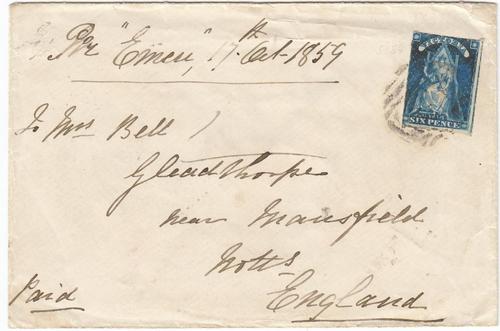 Per "Emeu", 17th Oct. 1859
VICTORIA
SIX PENCE
To Mrs Bell
Gleadthorpe
near Mansfield
Notts
England
Paid